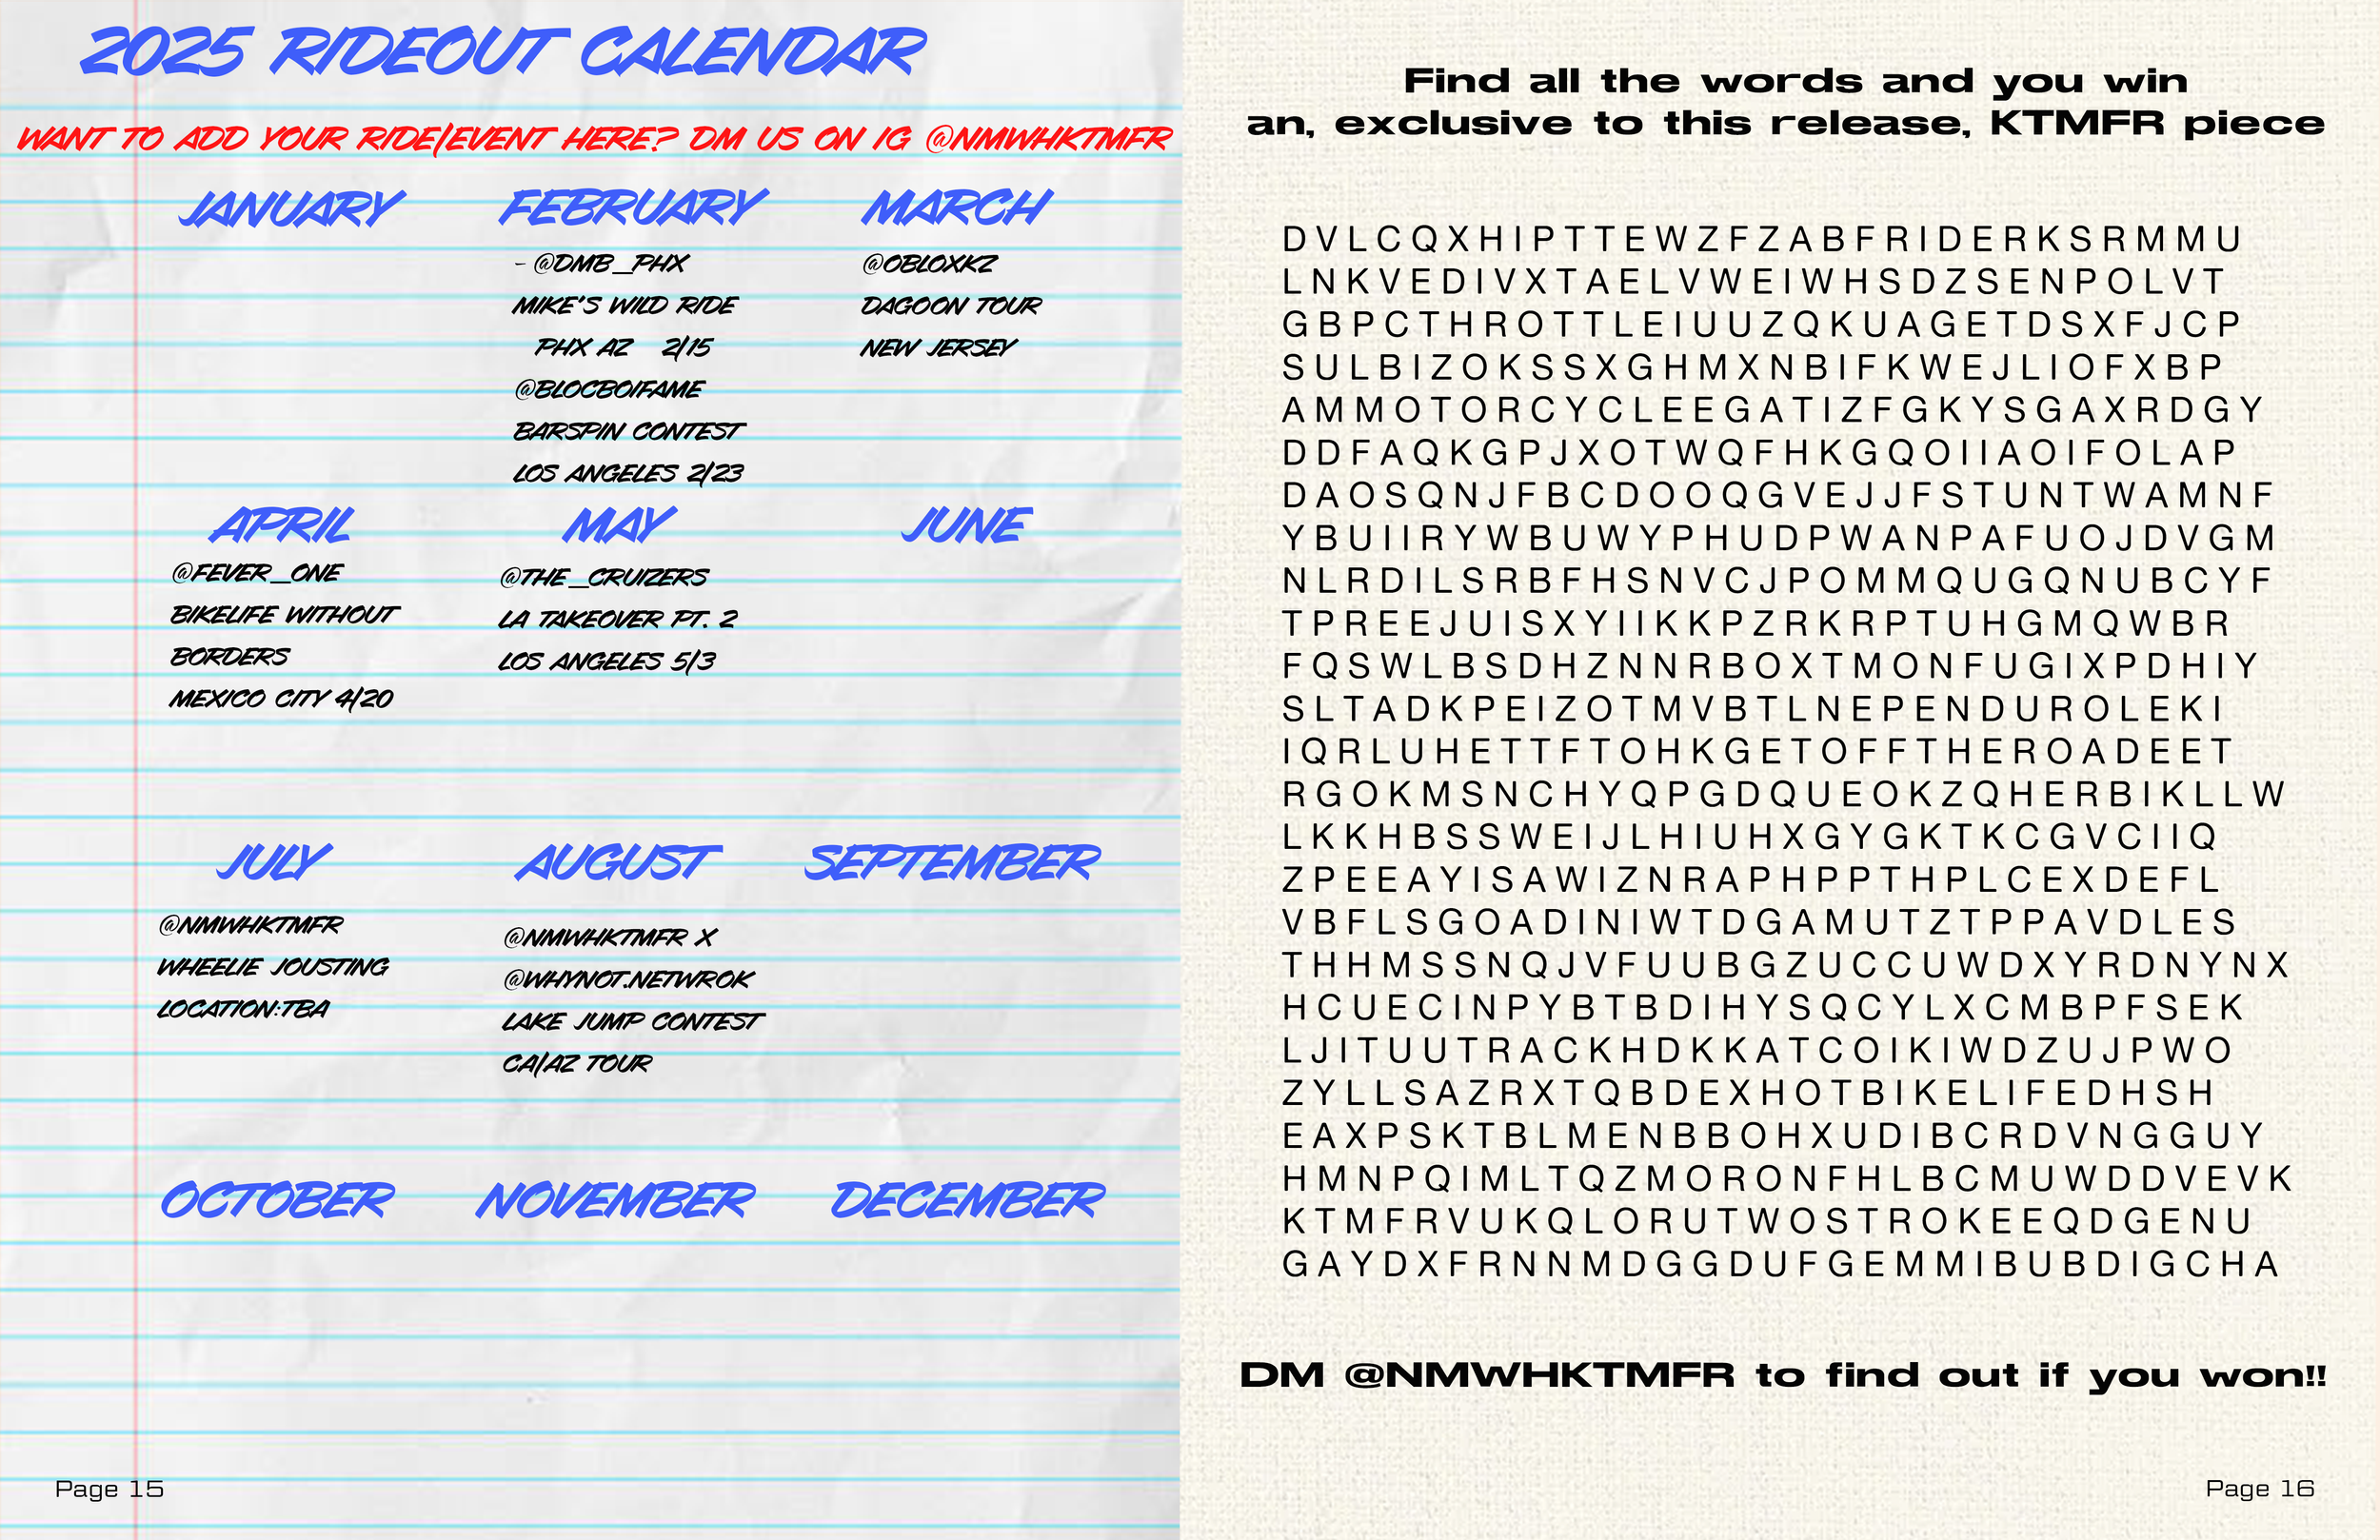 2025 RIDEOUT CALENDAR
WANT TO ADD YOUR RIDE/EVENT HERE? DM US ON IG @NMWHKTMFR
JANUARY
FEBRUARY
- @DMB_PHX
MIKE'S WILD RIDE
PHX AZ 2/15
@BLOCBOIFAME
BARSPIN CONTEST
LOS ANGELES 2/23
MARCH
@OBLOXKZ
DAGOON TOUR
NEW JERSEY
APRIL
@FEVER_ONE
BIKELIFE WITHOUT
BORDERS
MEXICO CITY 4/20
MAY
@THE_CRUIZERS
LA TAKEOVER PT. 2
LOS ANGELES 5/3
JUNE
JULY
@NMWHKTMFR
WHEELIE JOUSTING
LOCATION:TBA
AUGUST
@NMWHKTMFR X
@WHYNOT.NETWROK
LAKE JUMP CONTEST
CA/AZ TOUR
SEPTEMBER
OCTOBER
NOVEMBER
DECEMBER
Page 15
Find all the words and you win
an, exclusive to this release, KTMFR piece
D V L C Q X H I P T T E W Z F Z A B F R I D E R K S R M M U
L N K V E D I V X T A E L V W E I W H S D Z S E N P O L V T
G B P C T H R O T T L E I U U Z Q K U A G E T D S X F J C P
S U L B I Z O K S S X G H M X N B I F K W E J L I O F X B P
A M M O T O R C Y C L E E G A T I Z F G K Y S G A X R D G Y
D D F A Q K G P J X O T W Q F H K G Q O I I A O I F O L A P
D A O S Q N J F B C D O O Q G V E J J F S T U N T W A M N F
Y B U I I R Y W B U W Y P H U D P W A N P A F U O J D V G M
N L R D I L S R B F H S N V C J P O M M Q U G Q N U B C Y F
T P R E E J U I S X Y I I K K P Z R K R P T U H G M Q W B R
F Q S W L B S D H Z N N R B O X T M O N F U G I X P D H I Y
S L T A D K P E I Z O T M V B T L N E P E N D U R O L E K I
I Q R L U H E T T F T O H K G E T O F F T H E R O A D E E T
R G O K M S N C H Y Q P G D Q U E O K Z Q H E R B I K L L W
L K K H B S S W E I J L H I U H X G Y G K T K C G V C I I Q
Z P E E A Y I S A W I Z N R A P H P P T H P L C E X D E F L
V B F L S G O A D I N I W T D G A M U T Z T P P A V D L E S
T H H M S S N Q J V F U U B G Z U C C U W D X Y R D N Y N X
H C U E C I N P Y B T B D I H Y S Q C Y L X C M B P F S E K
L J I T U U T R A C K H D K K A T C O I K I W D Z U J P W O
Z Y L L S A Z R X T Q B D E X H O T B I K E L I F E D H S H
E A X P S K T B L M E N B B O H X U D I B C R D V N G G U Y
H M N P Q I M L T Q Z M O R O N F H L B C M U W D D V E V K
K T M F R V U K Q L O R U T W O S T R O K E E Q D G E N U
G A Y D X F R N N M D G G D U F G E M M I B U B D I G C H A
DM @NMWHKTMFR to find out if you won!!
Page 16